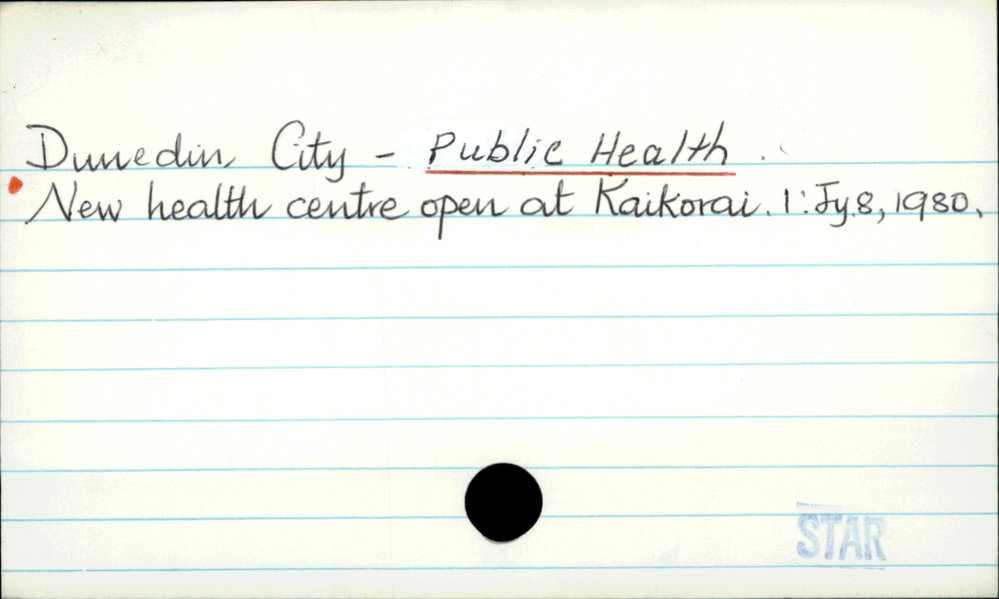 Dunedin City - Public Health.
New health centre open at Kaikorai. 1: Jy.8, 1980.
STAR